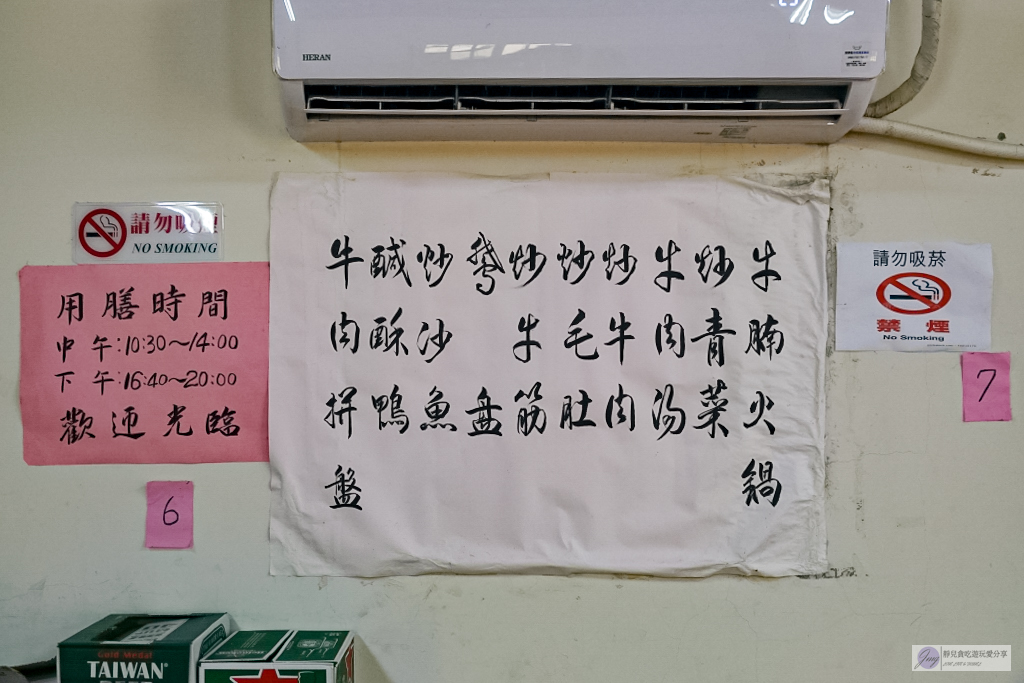 HERAN
請勿吸煙
NO SMOKING
用膳時間
中午:10:30～14:00
下午:16:40～20:00
歡迎光臨
6
牛腩火鍋
炒青菜
牛肉湯
炒牛肉
炒毛肚
炒牛筋
鵝盘
炒沙魚
鹹酥鴨
牛肉拼盤
請勿吸菸
禁煙
No Smoking
7
Gold Medal
TAIWAN
BEER
靜兒貪吃遊玩愛分享